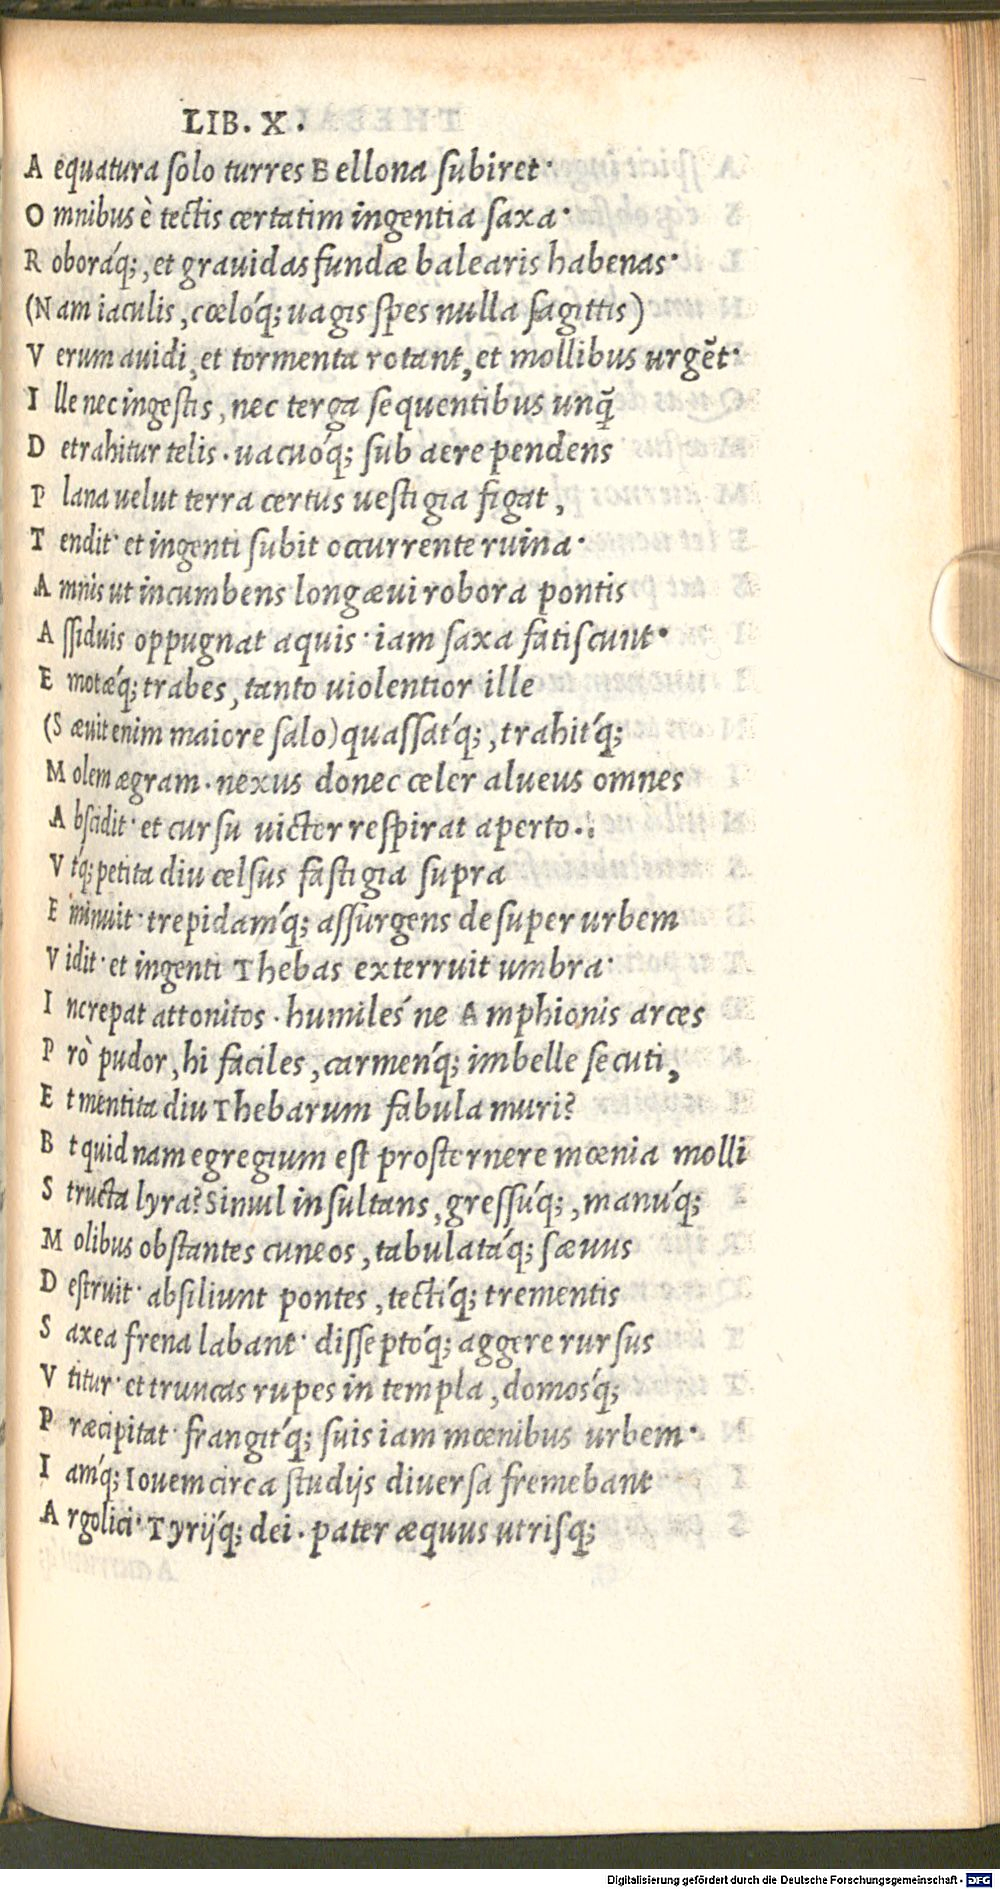 LIB. X.
A equatura ſolo turres Bellona ſubiret·
O mnibus è tectis certatim ingentia ſaxa·
R oboráq;, et grauidas fundæ balearis habenas·
(N am iaculis, cœlóq; uagis ſpes nulla ſagittis)
V erum auidi, et tormenta rotant, et mollibus urgẽt·
I lle nec ingeſtis, nec terga ſequentibus unq̃
D etrahitur telis. uacuóq; ſub aere pendens
P lana uelut terra certus ueſtigia figat,
T endit· et ingenti ſubit occurrente ruina·
A mnis ut incumbens longæui robora pontis
A ſſiduis oppugnat aquis· iam ſaxa fatiſcunt·
E motæq́; trabes, tanto uiolentior ille
(S æuit enim maiore ſalo) quaſſatq́;, trahitq́;
M olem ægram. nexus donec celer alueus omnes
A bſcidit· et curſu uictor reſpirat aperto.
V tq; petita diu celſus faſtigia ſupra
E minuit· trepidamq́; aſſurgens deſuper urbem
V idit· et ingenti Thebas exterruit umbra·
I ncrepat attonitos. humileſ́ne Amphionis arces
P rò pudor, hi faciles, carmenq́; imbelle ſecuti,
E t mentita diu Thebarum fabula muri?
B t quid nam egregium eſt proſternere mœnia molli
S tructa lyra? Simul inſultans, greſſúq;, manúq;
M olibus obſtantes cuneos, tabulatáq; ſæuus
D eſtruit· abſiliunt pontes, tectíq; trementis
S axea frena labant· diſſeptóq; aggere rurſus
V titur· et truncas rupes in templa, domosq́;
P ræcipitat· frangitq́; ſuis iam mœnibus urbem·
I amq́; Iouem circa ſtudijs diuerſa fremebant
A rgolici· Tyrijq́; dei. pater æquus utriſq;
Digitalisierung gefördert durch die Deutsche Forschungsgemeinschaft - DFG